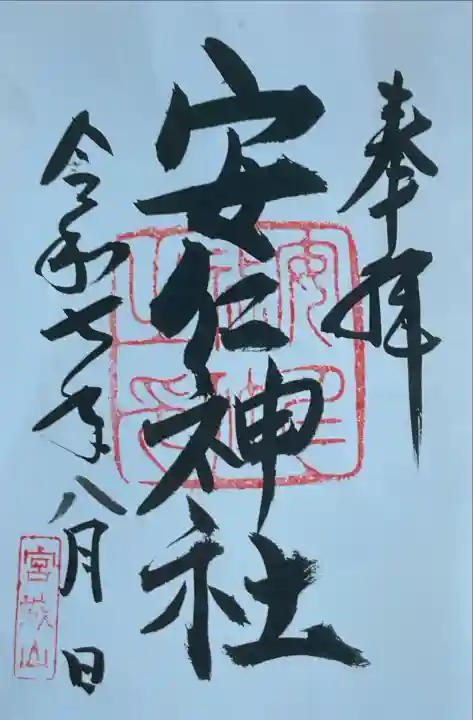 奉拝
安仁神社
令和七年八月 日
宮城山